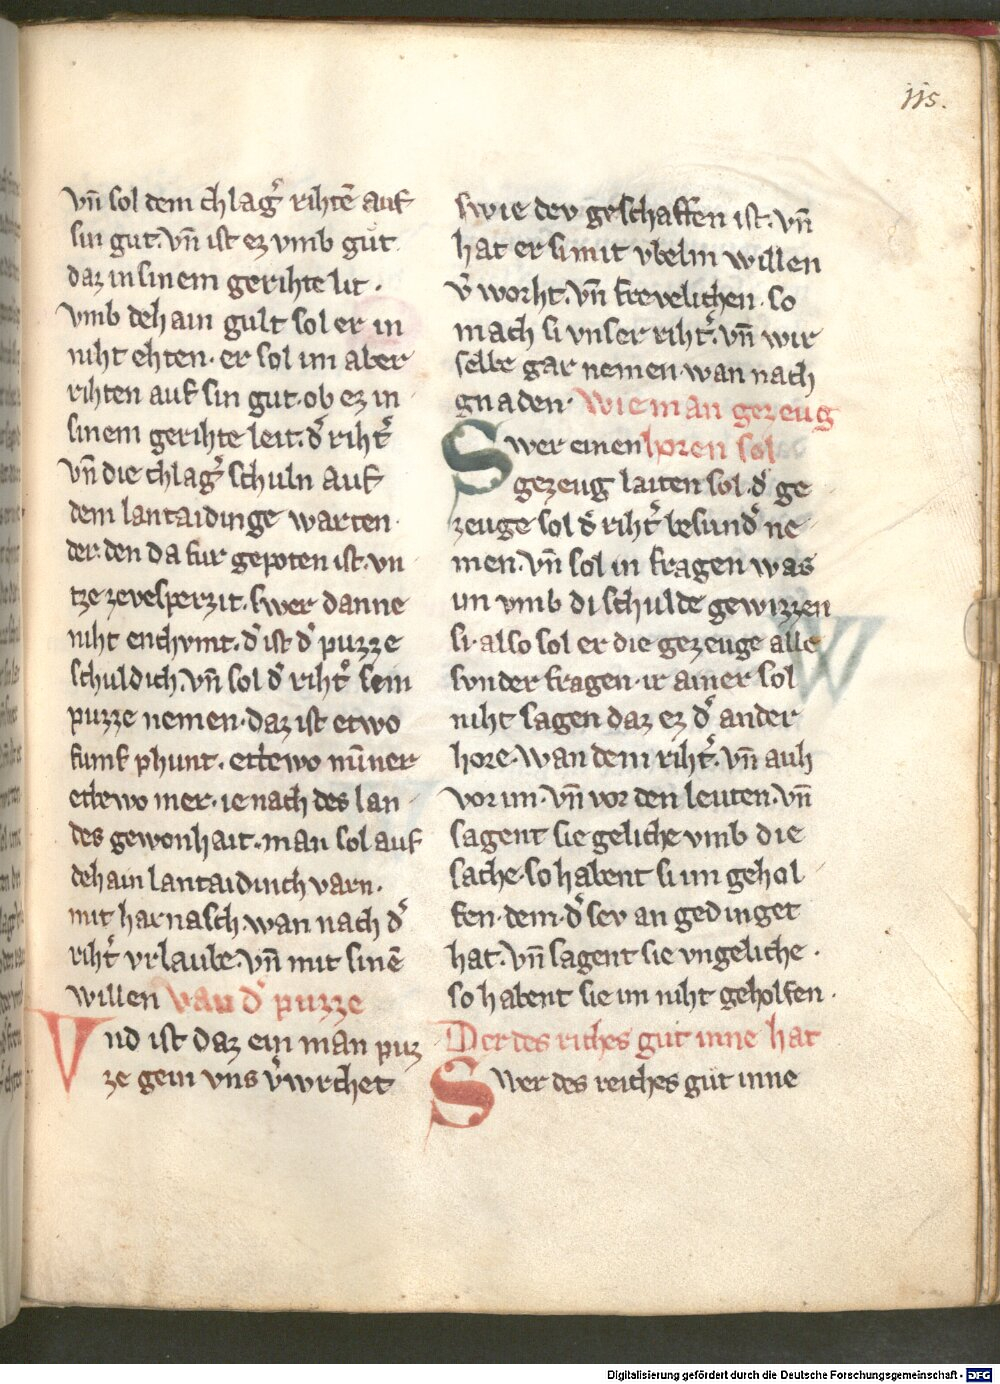 115.
vn̄ sol dem chlag᷑ rihtē auf
sin gut. vn̄ ist ez vmb gůt
daz in sinem gerihte lit.
vmb dehain gult sol er in
niht ehten. er sol im aber
rihten auf sin gut. ob ez in
sinem gerihte leit. d᷑ riht᷑
vn̄ die chlag᷑ schuln auf
dem lantaidinge warten.
der. den da fur gepoten ist. vn
tze ze vesperzit. swer danne
niht enchvmt. d᷑ ist d᷑ puzze
schuldich. vn̄ sol d᷑ riht᷑ sein
puzze nemen. daz ist etwo
funf phunt. ettewo mīner
ettewo mer. ie nach des lan
des gewonhait. man sol auf
dehain lantaidinch varn.
mit harnasch. wan nach d᷑
riht᷑ vrlaube. vn̄ mit sinē
willen van d᷑ puzze
Vnd ist daz ein man puz
ze gein vns v᷑wrchet
swie dev geschaffen ist. vn̄
hat er si mit vbelm willen
v᷑ worht. vn̄ frevelichen. so
mach si vnser riht᷑. vn̄ wir
selbe gar nemen. wan nach
gnaden. Wie man gezeug
Swer einen horen sol
gezeug laiten sol. d᷑ ge
zeuge sol d᷑ riht᷑ besund᷑ ne
men. vn̄ sol in fragen was
im vmb di schulde gewizzen
si. also sol er die gezeuge alle
svnder fragen. ir ainer sol
niht sagen daz ez d᷑ ander
hore. wan dem riht᷑. vn̄ auh
vor im. vn̄ vor den leuten. vn̄
sagent sie geliche vmb die
sache. so habent si im gehol
fen. dem. d᷑ sev an gedinget
hat. vn̄ sagent sie vngeliche.
so habent sie im niht geholfen.
Der des riches gut inne hat
Swer des reiches gut inne
Digitalisierung gefördert durch die Deutsche Forschungsgemeinschaft - DFG